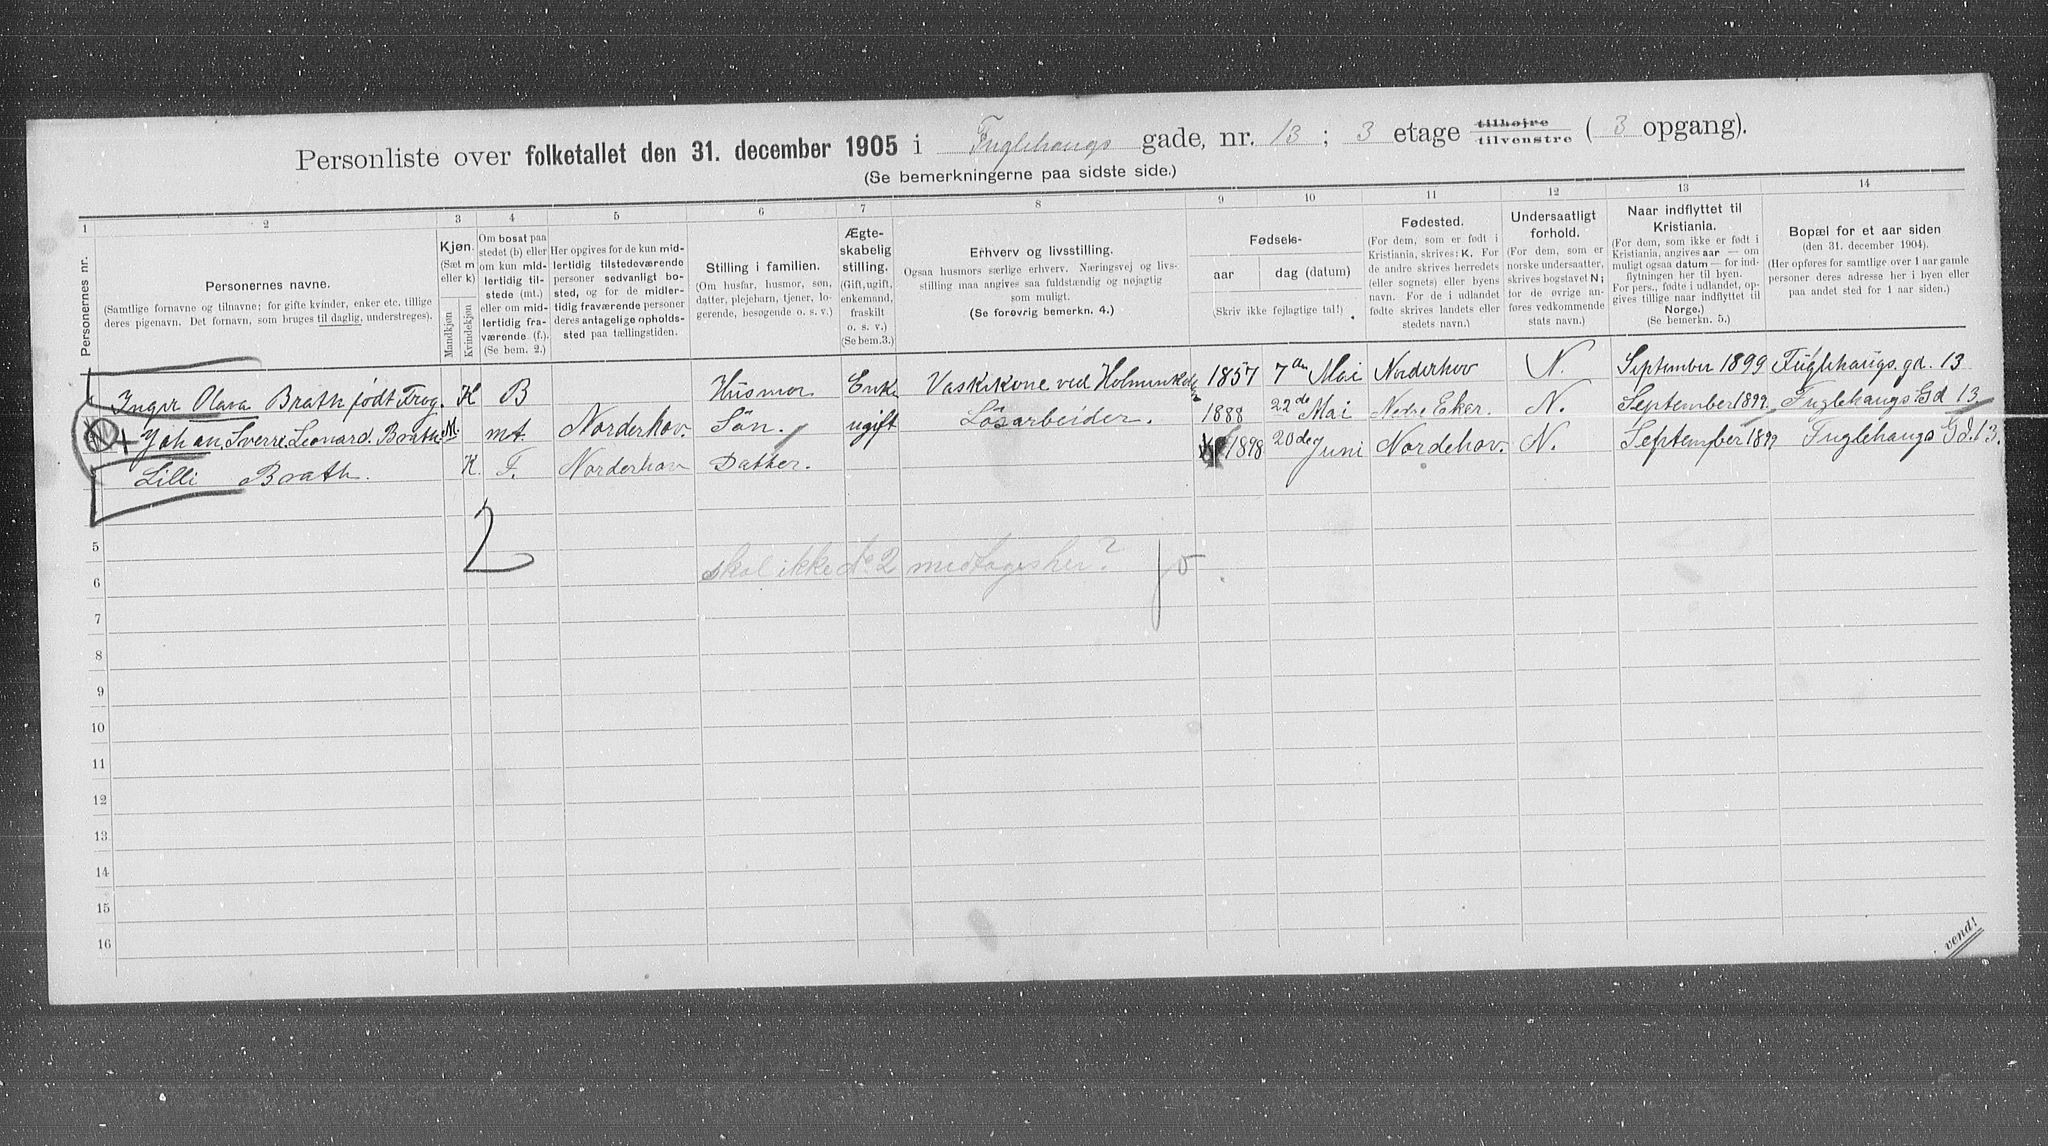 Personliste over folketallet den 31. december 1905 i Fuglehaugs gade, nr. 13 ; 3 etage tilhøjre tilvenstre ( 3 opgang).
(Se bemerkningerne paa sidste side.)
1 2 3 4 5 6 7 8 9 10 11 12 13 14
Personernes nr.
Personernes navne.
(Samtlige fornavne og tilnavne; for gifte kvinder, enker etc. tillige
deres pigenavn. Det fornavn, som bruges til daglig, understreges).
Kjøn.
(Sæt m
eller k)
Mandkjøn
Kvindekjøn
Om bosat paa
stedet (b) eller
om kun midlertidig tilstede (mt.)
eller om midlertidig fraværende (f.).
(Se bem. 2.)
Her opgives for de kun midlertidig tilstedeværende
personer sedvanligt bosted, og for de midlertidig fraværende personer
deres antagelige opholdssted paa tællingstiden.
Stilling i familien.
(Om husfar, husmor, søn,
datter, plejebarn, tjener, logerende, besøgende o. s. v.)
Ægteskabelig
stilling.
(Gift, ugift,
enkemand,
fraskilt
o. s. v.)
(Se bem.3.)
Erhverv og livsstilling.
Ogsaa husmors særlige erhverv. Næringsvej og livsstilling maa angives saa fuldstændig og nøjagtig
som muligt.
(Se forøvrig bemerkn. 4.)
Fødsels-
aar dag (datum)
(Skriv ikke fejlagtige tal!)
Fødested.
(For dem, som er født i
Kristiania, skrives: K. For
de andre skrives herredets
(eller sognets) eller byens
navn. For de i udlandet
fødte skrives landets eller
stedets navn.)
Undersaatligt
forhold.
(For dem, som er
norske undersaatter,
skrives bogstavet N;
for de øvrige anføres vedkommende
stats navn.)
Naar indflyttet til
Kristiania.
(For dem, som ikke er født i
Kristiania, angives aar — om
muligt ogsaa datum — for indflytningen her til byen.
For pers., fødte i udlandet, opgives tillige naar indflyttet til
Norge.)
(Se bemerkn. 5.)
Bopæl for et aar siden
(den 31. december 1904).
(Her opføres for samtlige over 1 aar gamle
personer deres adresse her i byen eller
paa andet sted for 1 aar siden.)
Inger Olava Brath født Frog. K B Husmor Enke Vaskekone ved 1857 7de Mai Norderhov N. September 1899 Fuglehaugs gd. 13
Johan Sverre Leonard Brath M mt. Norderhov. Søn. ugift Løsarbeider. 1888 22de Mai Nedre Eker. N. September 1899 Fuglehaugs Gd 13
Lilli Brath. K. F. Norderhov Datter. 1898 20de Juni Nordehov. N. September 1899 Fuglehaugs Gd. 13.
2
5
skal ikke de 2 medtages her? jo.
6
7
8
9
10
11
12
13
14
15
16
vend!